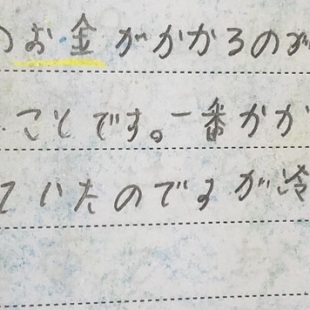 のお金がかかるのが
ことです。一番かか
ていたのですが冷